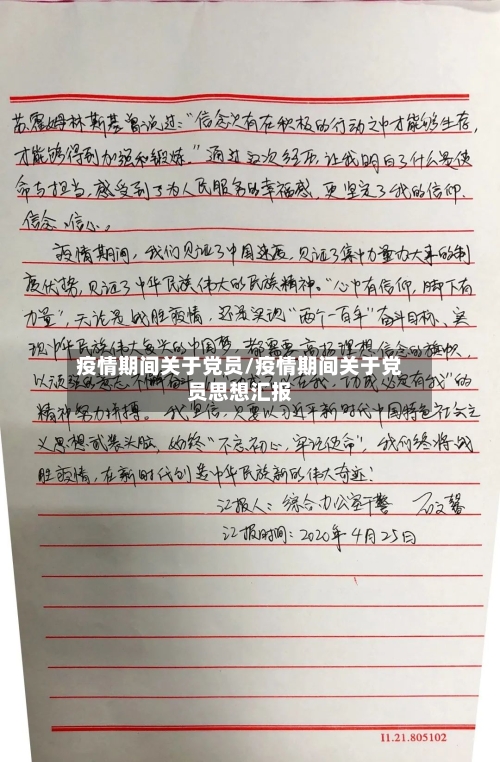 苏霍姆林斯基曾说过:“信念只有在积极的行动之中才能够生存,
才能够得到加强和锻炼。”通过这次经历,让我明白了什么是使
命与担当,感受到了为人民服务的幸福感,更坚定了我的信仰、
信念、信心。
疫情期间,我们见证了中国速度,见证了集中力量办大事的制
度优势,见证了中华民族伟大的民族精神。“心中有信仰,脚下有
力量”,无论是战胜疫情,还是实现“两个一百年”奋斗目标、实
现中华民族伟大复兴的中国梦,都需要高扬理想信念的旗帜,
疫情期间关于党员/疫情期间关于党
员思想汇报
以顽强的意志、不懈奋斗 在我,功成必定有我”的
精神努力拼搏。我坚信,只要以习近平新时代中国特色社会主
义思想武装头脑,始终“不忘初心,牢记使命”,我们终将战
胜疫情,在新时代创造中华民族新的伟大奇迹!
汇报人:综合办公室干警 石文馨
汇报时间:2020年4月25日
11.21.805102